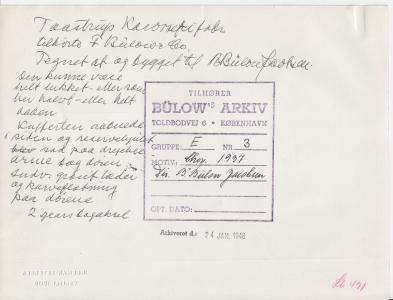 Taastrup Karosserifabr
tilhørte F Bülow & Co.
Tegnet af og bygget til B Bülow Jacobsen.
Den kunne være
helt lukket - eller som
her halvt - eller helt
aaben
Kufferten aabnede
siden og reservehjulet
sad paa drejelig
arme bag døren
Indv. grønt læder
og kurvefletning
paa dørene
2 gears bagaksel
TILHØRER
BÜLOW'S ARKIV
TOLDBODVEJ 6 • KØBENHAVN
GRUPPE: E NR. 3
MOTIV: Chev. 1937
Dir. B Bülow Jacobsen
OPT. DATO:
Arkiveret d.: 24 JAN. 1948